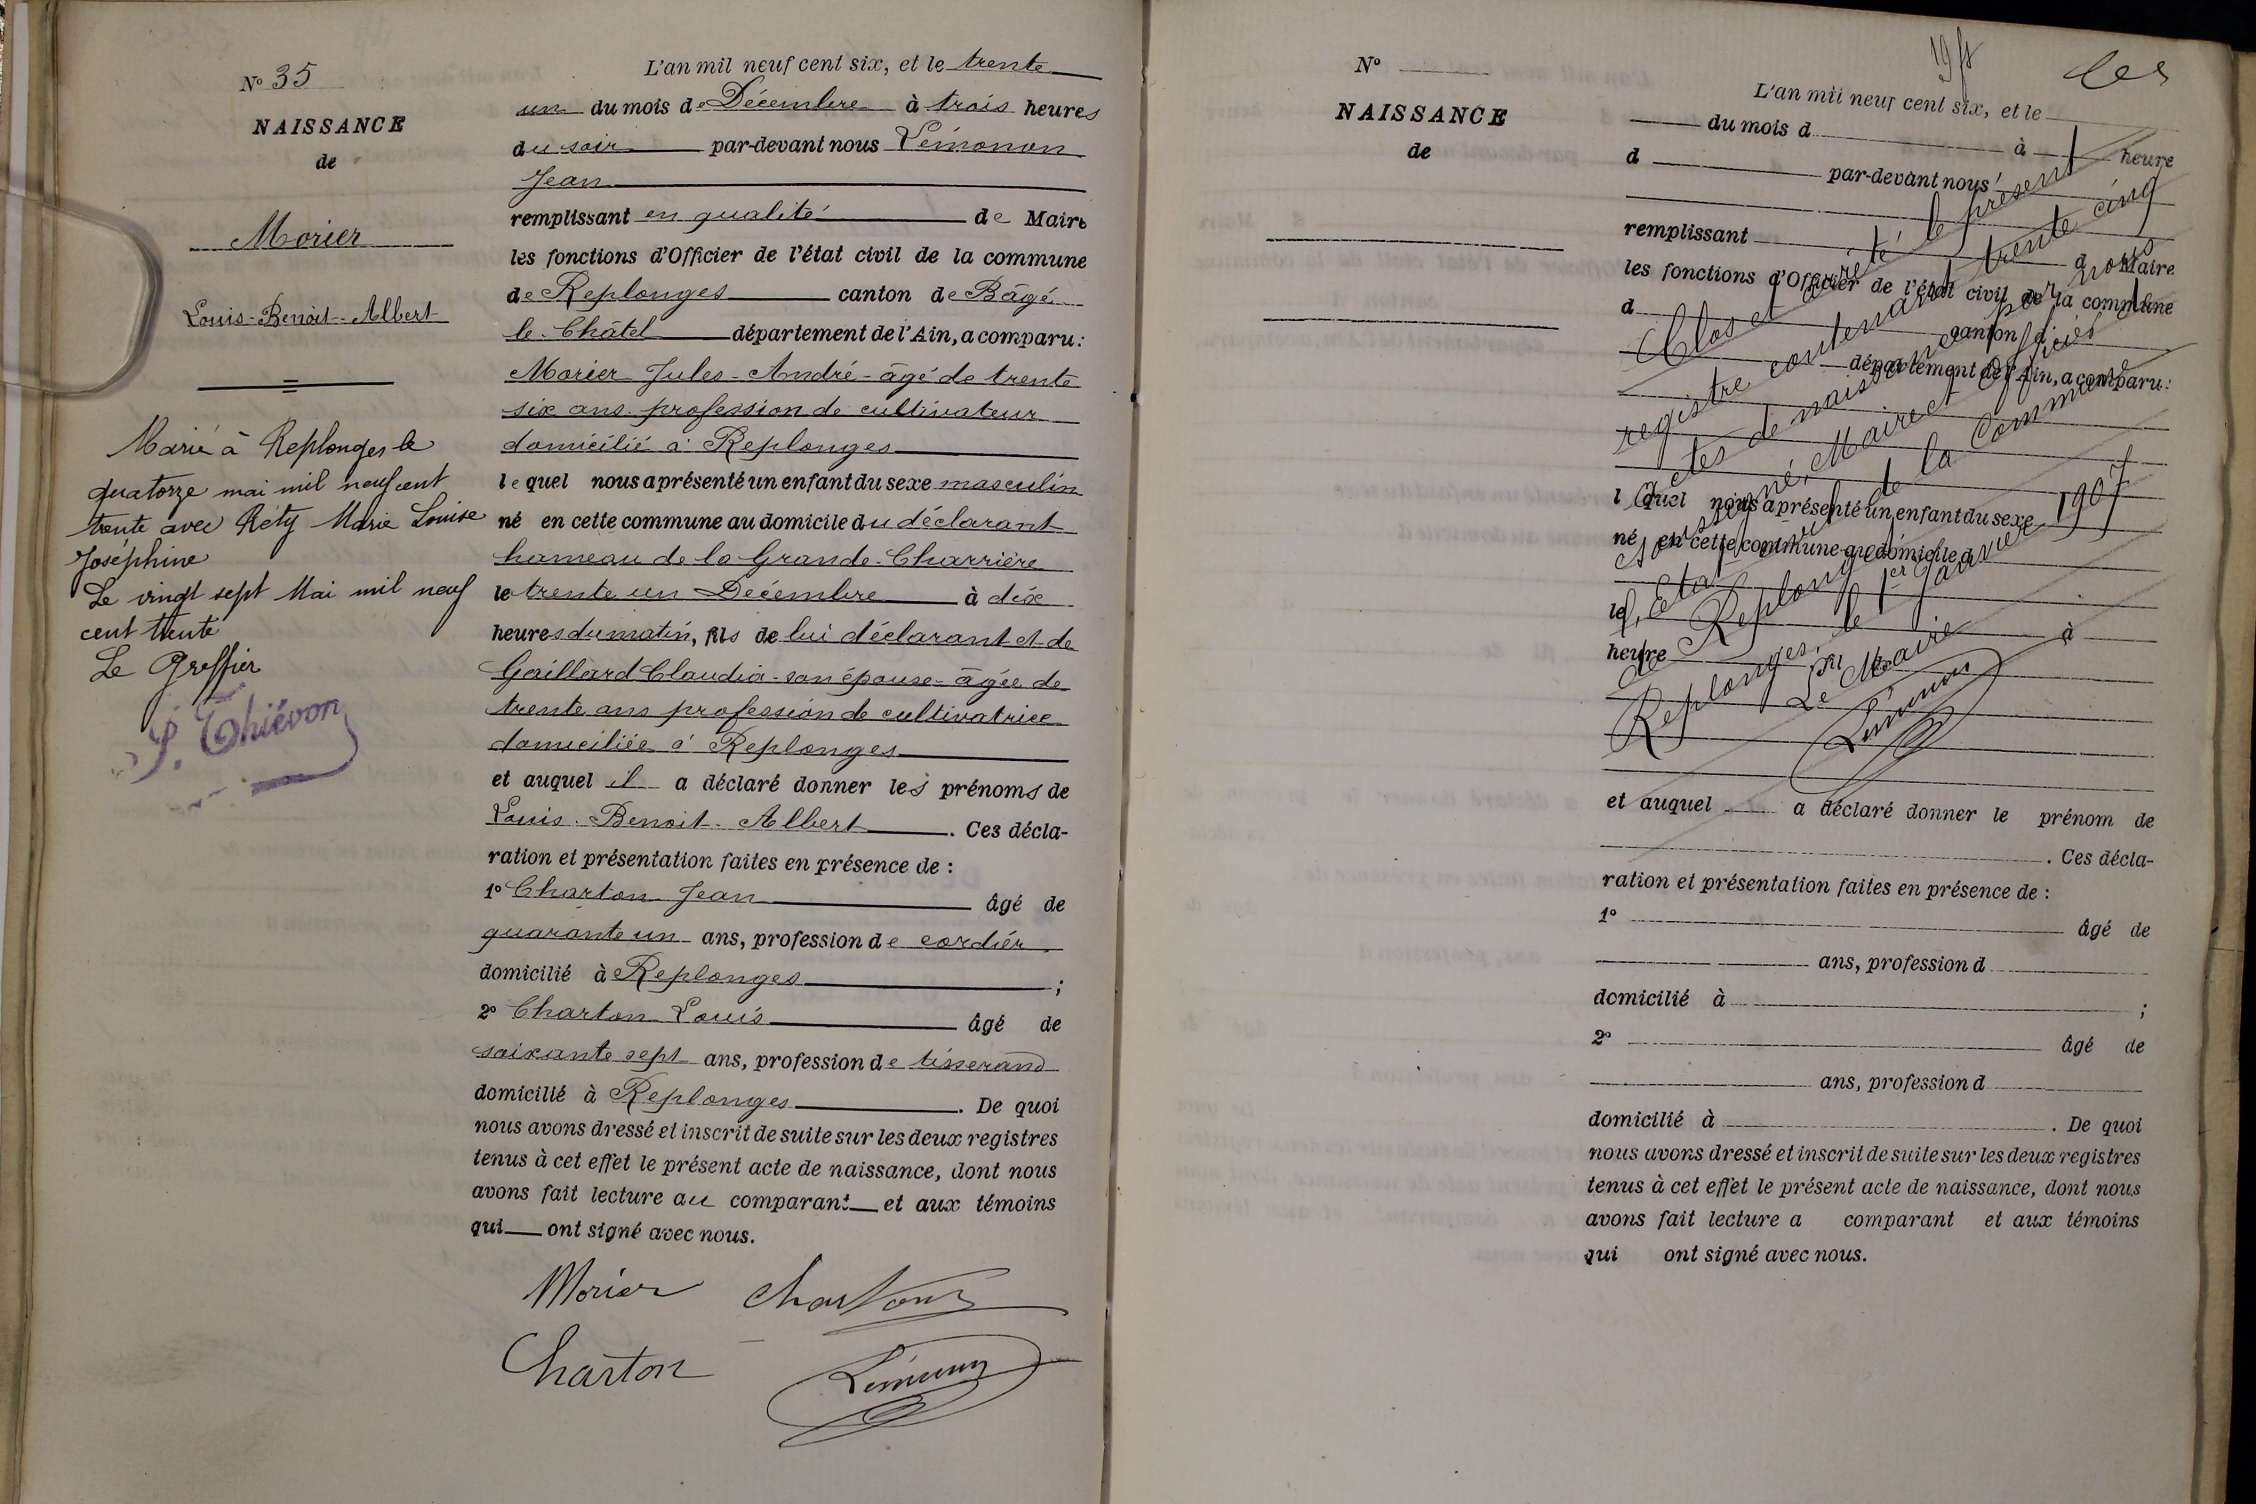 N° 35
NAISSANCE
de
Morier
Louis-Benoit-Albert
Marié à Replonges le
quatorze mai mil neuf cent
trente avec Réty Marie Louise
Joséphine
Le vingt sept Mai mil neuf
cent trente
Le Greffier
S. Thiévon
L'an mil neuf cent six, et le trente
un du mois de Décembre à trois heures
du soir par-devant nous Lémonon
Jean
remplissant en qualité de Maire
les fonctions d'Officier de l'état civil de la commune
de Replonges canton de Bâgé
le-Châtel département de l'Ain, a comparu:
Morier Jules-André-âgé de trente
six ans profession de cultivateur
domicilié à Replonges
lequel nous a présenté un enfant du sexe masculin
né en cette commune au domicile du déclarant
hameau de la Grande-Charrière
le trente un Décembre à dix
heures du matin, fils de lui déclarant et de
Gaillard Claudia-son épouse-âgée de
trente ans profession de cultivatrice
domiciliée à Replonges
et auquel il a déclaré donner les prénoms de
Louis-Benoit-Albert. Ces décla-
ration et présentation faites en présence de :
1° Charton Jean âgé de
quarante un ans, profession de cordier
domicilié à Replonges ;
2° Charton Louis âgé de
soixante sept ans, profession de tisserand
domicilié à Replonges. De quoi
nous avons dressé et inscrit de suite sur les deux registres
tenus à cet effet le présent acte de naissance, dont nous
avons fait lecture au comparant et aux témoins
qui ont signé avec nous.
Morier Charton
Charton Lémonon
N°
NAISSANCE
de
L'an mil neuf cent six, et le
du mois d à heure
d par-devant nous
remplissant d Maire
les fonctions d'Officier de l'état civil de la commune
d canton d
département de l'Ain, a comparu:
l quel nous a présenté un enfant du sexe
né en cette commune au domicile d
le à
heure fil de
et auquel a déclaré donner le prénom de
. Ces décla-
ration et présentation faites en présence de :
1° âgé de
ans, profession d
domicilié à ;
2° âgé de
ans, profession d
domicilié à . De quoi
nous avons dressé et inscrit de suite sur les deux registres
tenus à cet effet le présent acte de naissance, dont nous
avons fait lecture a comparant et aux témoins
qui ont signé avec nous.
Clos et arrêté le présent
registre contenant trente cinq
actes de naissance par nous
soussigné, Maire et officier de
l'Etat civil de la Commune
de Replonges
Replonges, le 1er Janvier 1907
Le Maire
Lémonon